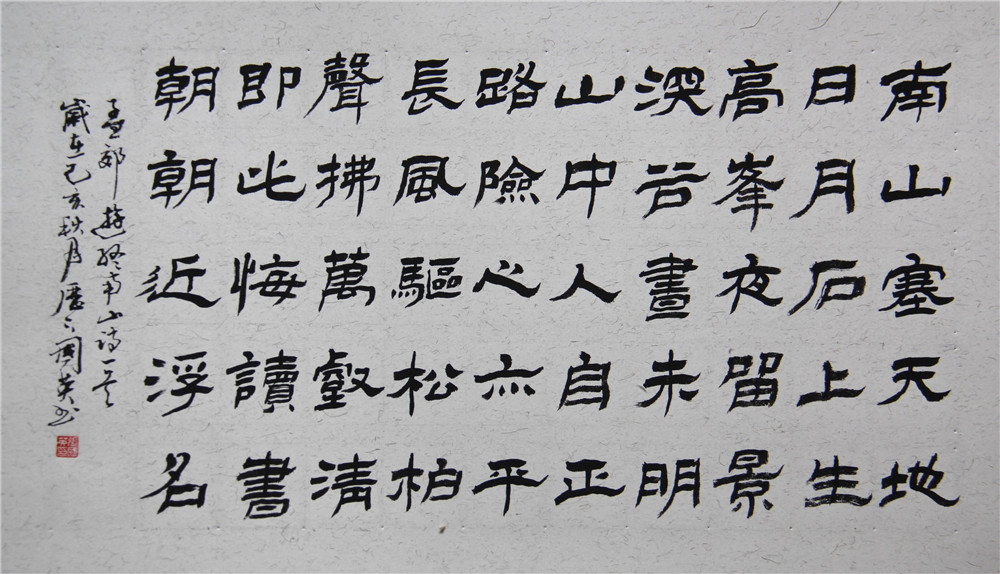 南山塞天地
日月石上生
高峯夜留景
深谷晝未明
山中人自正
路險心亦平
長風驅松柏
聲拂萬壑清
即此悔讀書
朝朝近浮名
孟郊遊終南山詩一首
歲在己亥秋月 周英书